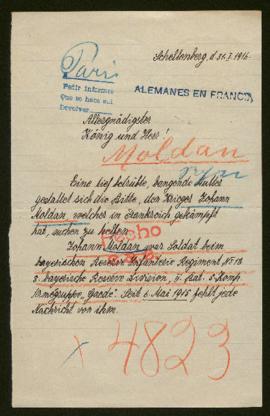 Schellenberg, d. 31.7. 1916.
Paris
Pedir informes
Que se haca aqui
devolver
ALEMANES EN FRANCIA
Allergnädigster
König und Herr!
Moldan
Eine tief betrübte, bangende Mutter
gestattet sich die Bitte, den Krieger Johann
Moldan, welcher in Frankreich gekämpft
hat, suchen zu helfen.
Hecho
Johann Moldan war Soldat beim
bayerischen Reserve Infanterie Regiment № 18
bayerische Reserve Division, 4. Bat. 5. Komp.
Armegruppe "Gaede". Seit 6. Mai 1915 fehlt jede
Nachricht von ihm.
x 4823